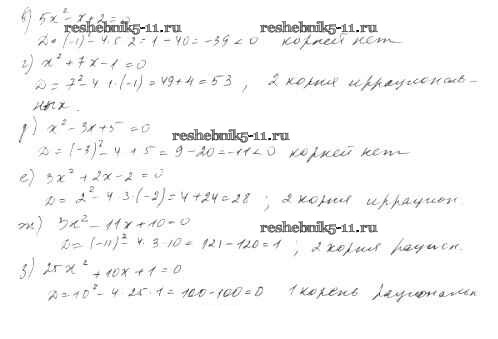 в) 5x² - x + 2 = 0
reshebnik5-11.ru reshebnik5-11.ru
D = (-1)² - 4·5·2 = 1 - 40 = -39 < 0 корней нет
г) x² + 7x - 1 = 0
D = 7² - 4·1·(-1) = 49 + 4 = 53, 2 корня иррациональ-
ных.
д) x² - 3x + 5 = 0
reshebnik5-11.ru
D = (-3)² - 4 + 5 = 9 - 20 = -11 < 0 корней нет
е) 3x² + 2x - 2 = 0
D = 2² - 4·3·(-2) = 4 + 24 = 28; 2 корня иррацион.
ж) 3x² - 11x + 10 = 0
reshebnik5-11.ru
D = (-11)² - 4·3·10 = 121 - 120 = 1; 2 корня рацион.
з) 25x² + 10x + 1 = 0
D = 10² - 4·25·1 = 100 - 100 = 0 1 корень рациональн